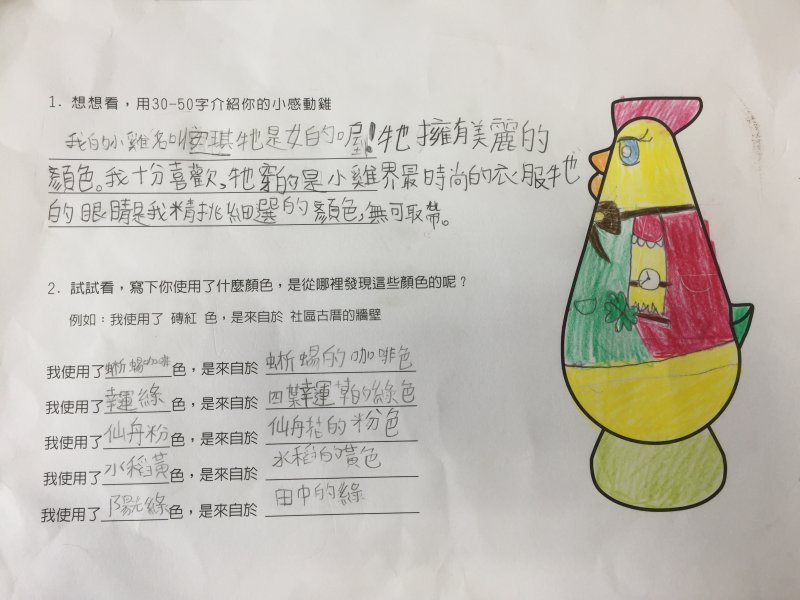 1. 想想看，用30-50字介紹你的小感動雞
我的小雞名叫安琪牠是女的喔!牠擁有美麗的
顏色。我十分喜歡，牠穿的是小雞界最時尚的衣服牠
的眼睛是我精挑細選的顏色，無可取帶。
2. 試試看，寫下你使用了什麼顏色，是從哪裡發現這些顏色的呢？
例如：我使用了 磚紅 色，是來自於 社區古厝的牆壁
我使用了蜥蜴咖啡色，是來自於 蜥蜴的咖啡色
我使用了幸運綠色，是來自於 四葉幸運草的綠色
我使用了仙丹粉色，是來自於 仙丹花的粉色
我使用了水稻黃色，是來自於 水稻的黃色
我使用了陽光綠色，是來自於 田中的綠